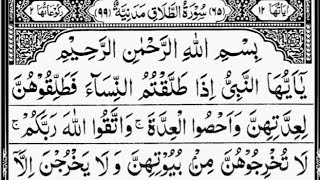 اٰیَاتُهَا ١٢ (٦٥) سُوْرَةُ الطَّلَاقِ مَدَنِيَّةٌ (٩٩) رُكُوْعَاتُهَا ٢
بِسْمِ اللّٰهِ الرَّحْمٰنِ الرَّحِيْمِ
يٰٓاَيُّهَا النَّبِيُّ اِذَا طَلَّقْتُمُ النِّسَآءَ فَطَلِّقُوْهُنَّ
لِعِدَّتِهِنَّ وَاَحْصُوا الْعِدَّةَ ۚ وَاتَّقُوا اللّٰهَ رَبَّكُمْ ۚ
لَا تُخْرِجُوْهُنَّ مِنْۢ بُيُوْتِهِنَّ وَلَا يَخْرُجْنَ اِلَّآ